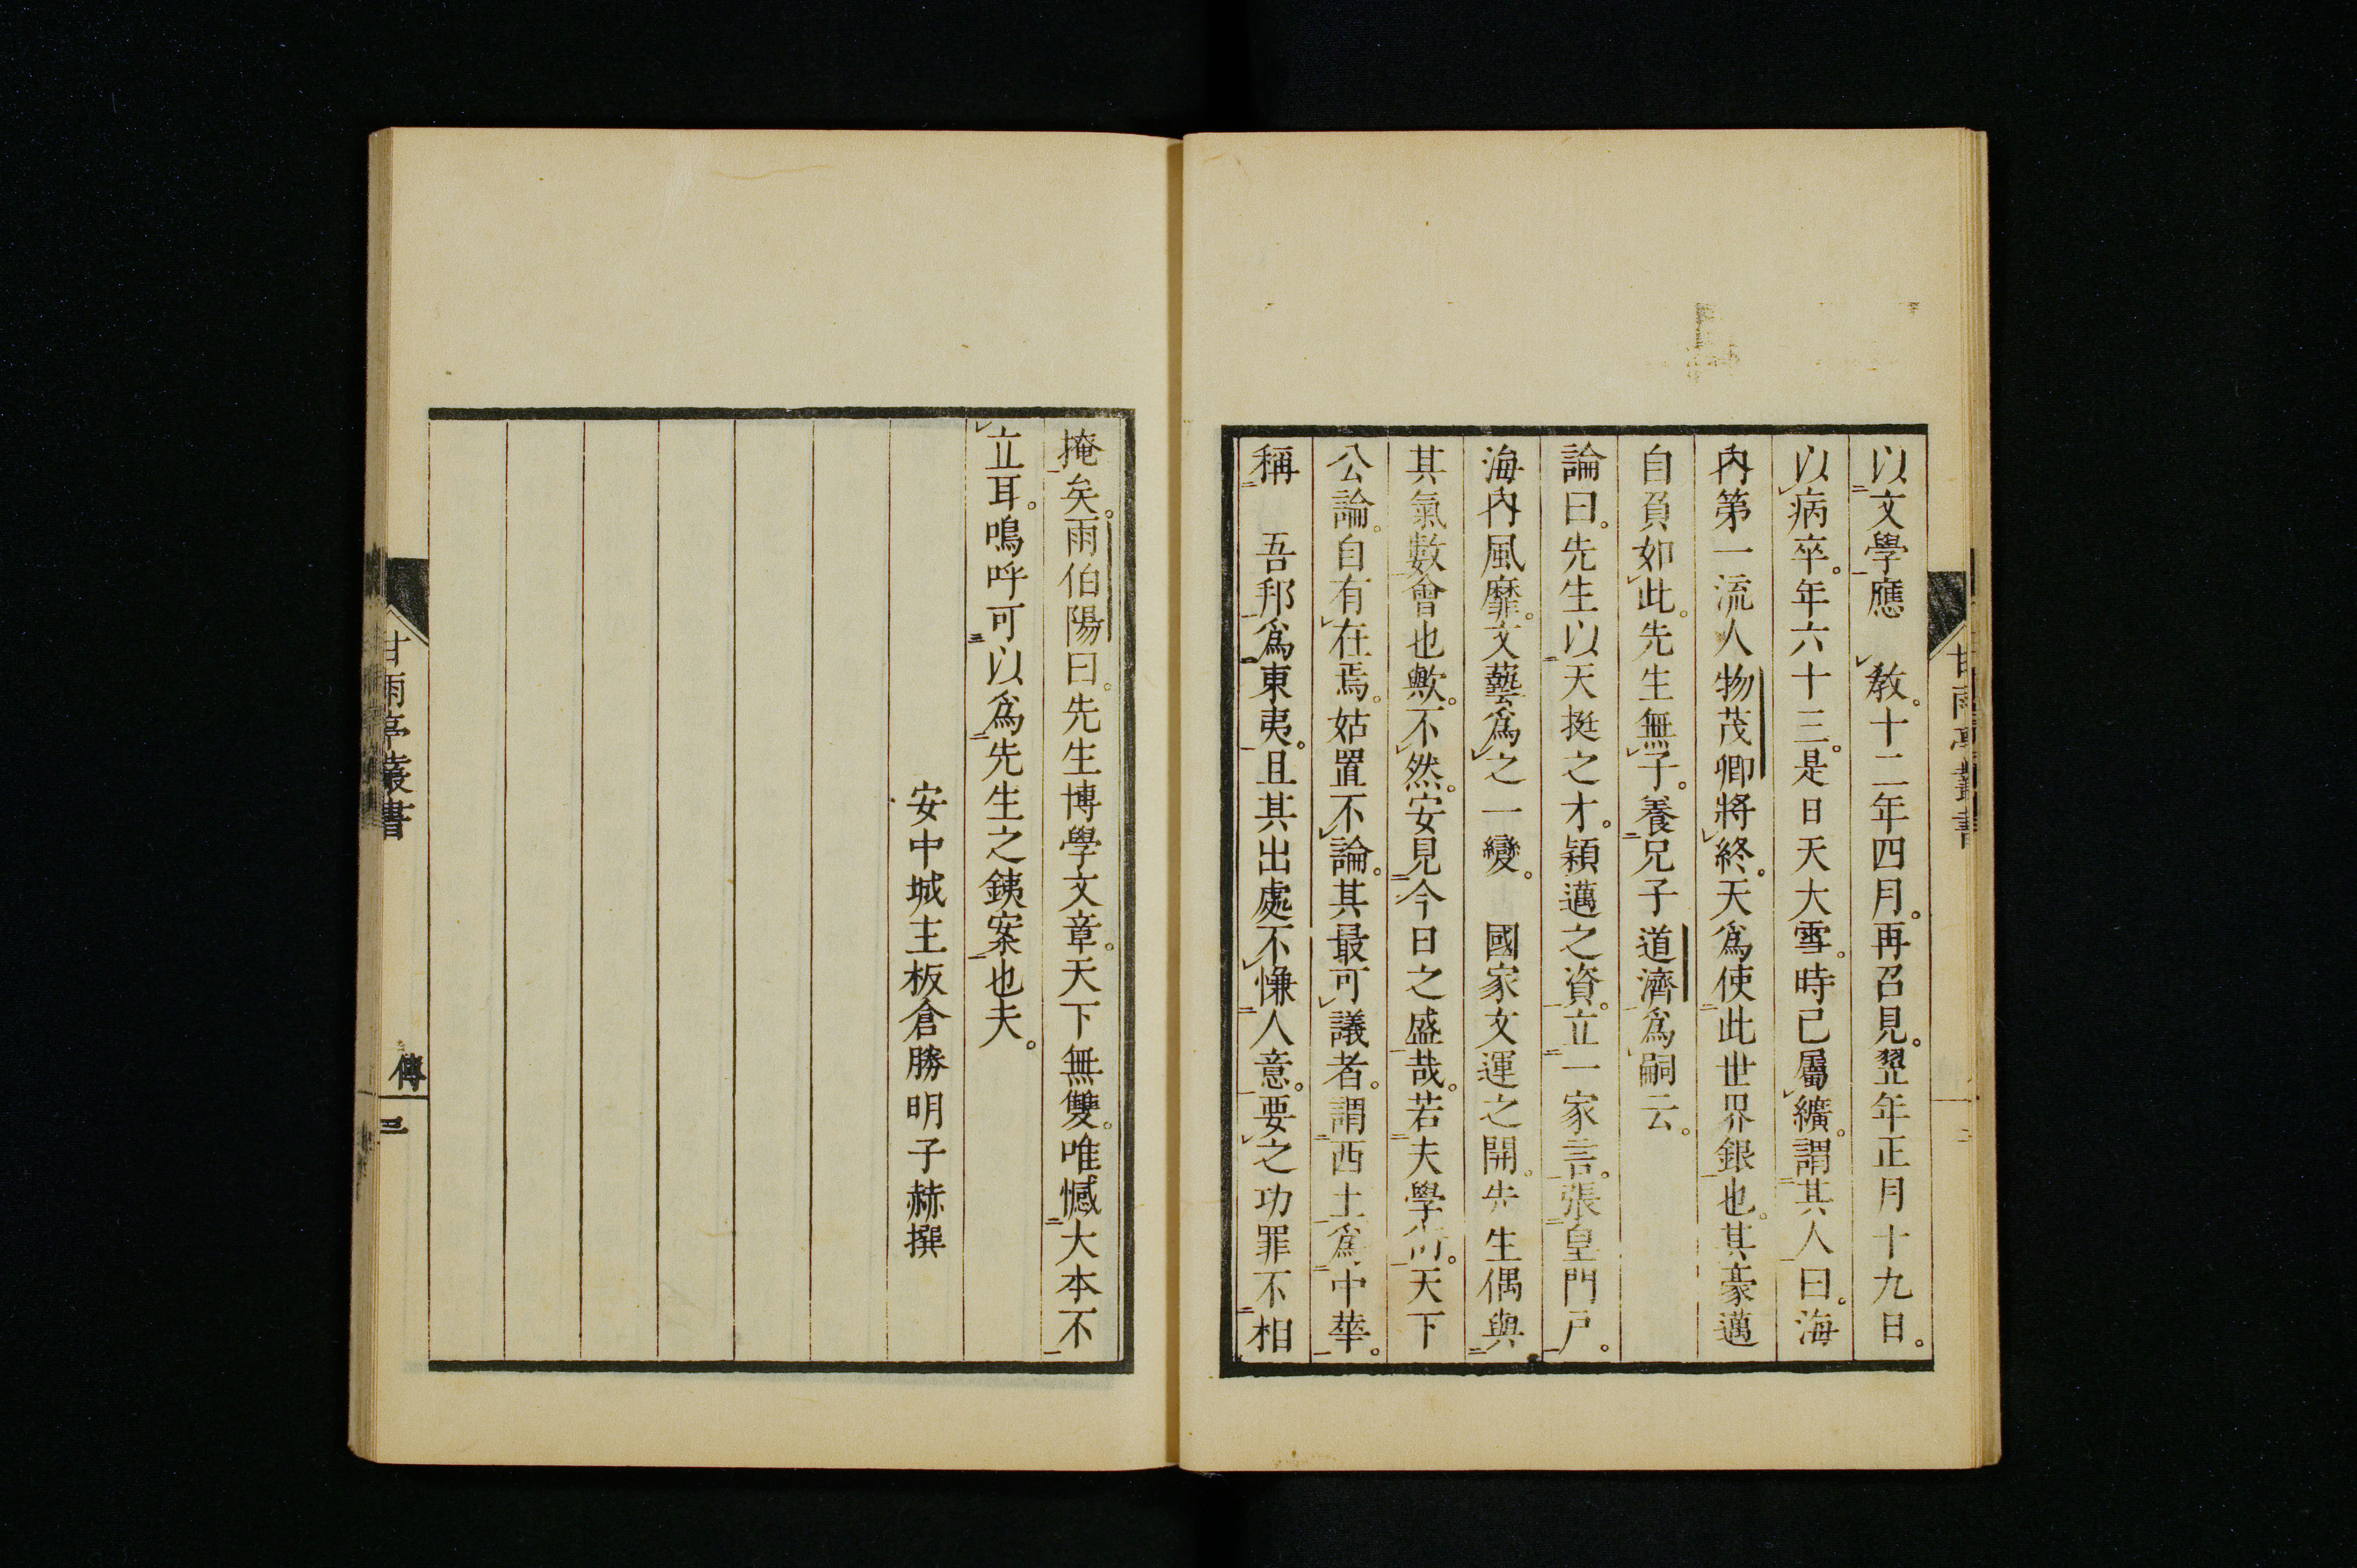 以文學應　教。十二年四月。再召見。翌年正月十九日。
以病卒。年六十三。是日天大雪。時已屬纊。謂其人曰。海
内第一流人物茂卿將終。天爲使此世界銀也。其豪邁
自負如此。先生無子。養兄子道濟爲嗣云。
論曰。先生以天挺之才。穎邁之資。立一家言。張皇門戸。
海内風靡。文藝爲之一變。　國家文運之開。先生偶與
其氣數會也歟。不然。安見今日之盛哉。若夫學術。天下
公論。自有在焉。姑置不論。其最可議者。謂西土爲中華。
稱　吾邦爲東夷。且其出處不慊人意。要之功罪不相
掩矣。雨伯陽曰。先生博學文章。天下無雙。唯憾大本不
立耳。嗚呼可以爲先生之銕案也夫。
安中城主板倉勝明子赫撰
甘雨亭叢書
傳
三